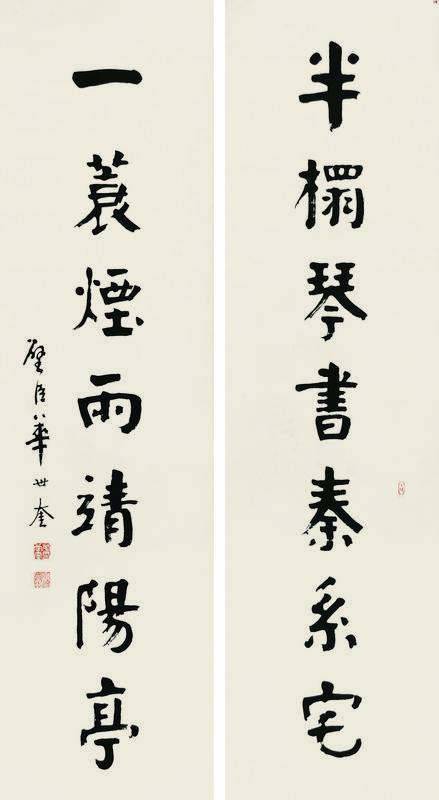 半榻琴書秦系宅
一蓑煙雨靖陽亭
壁臣華世奎